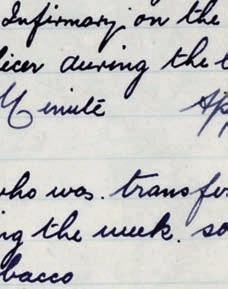 Infirmary on the
icer during the t
Minute Ap
who was. transfer
ng the week. so
bacco